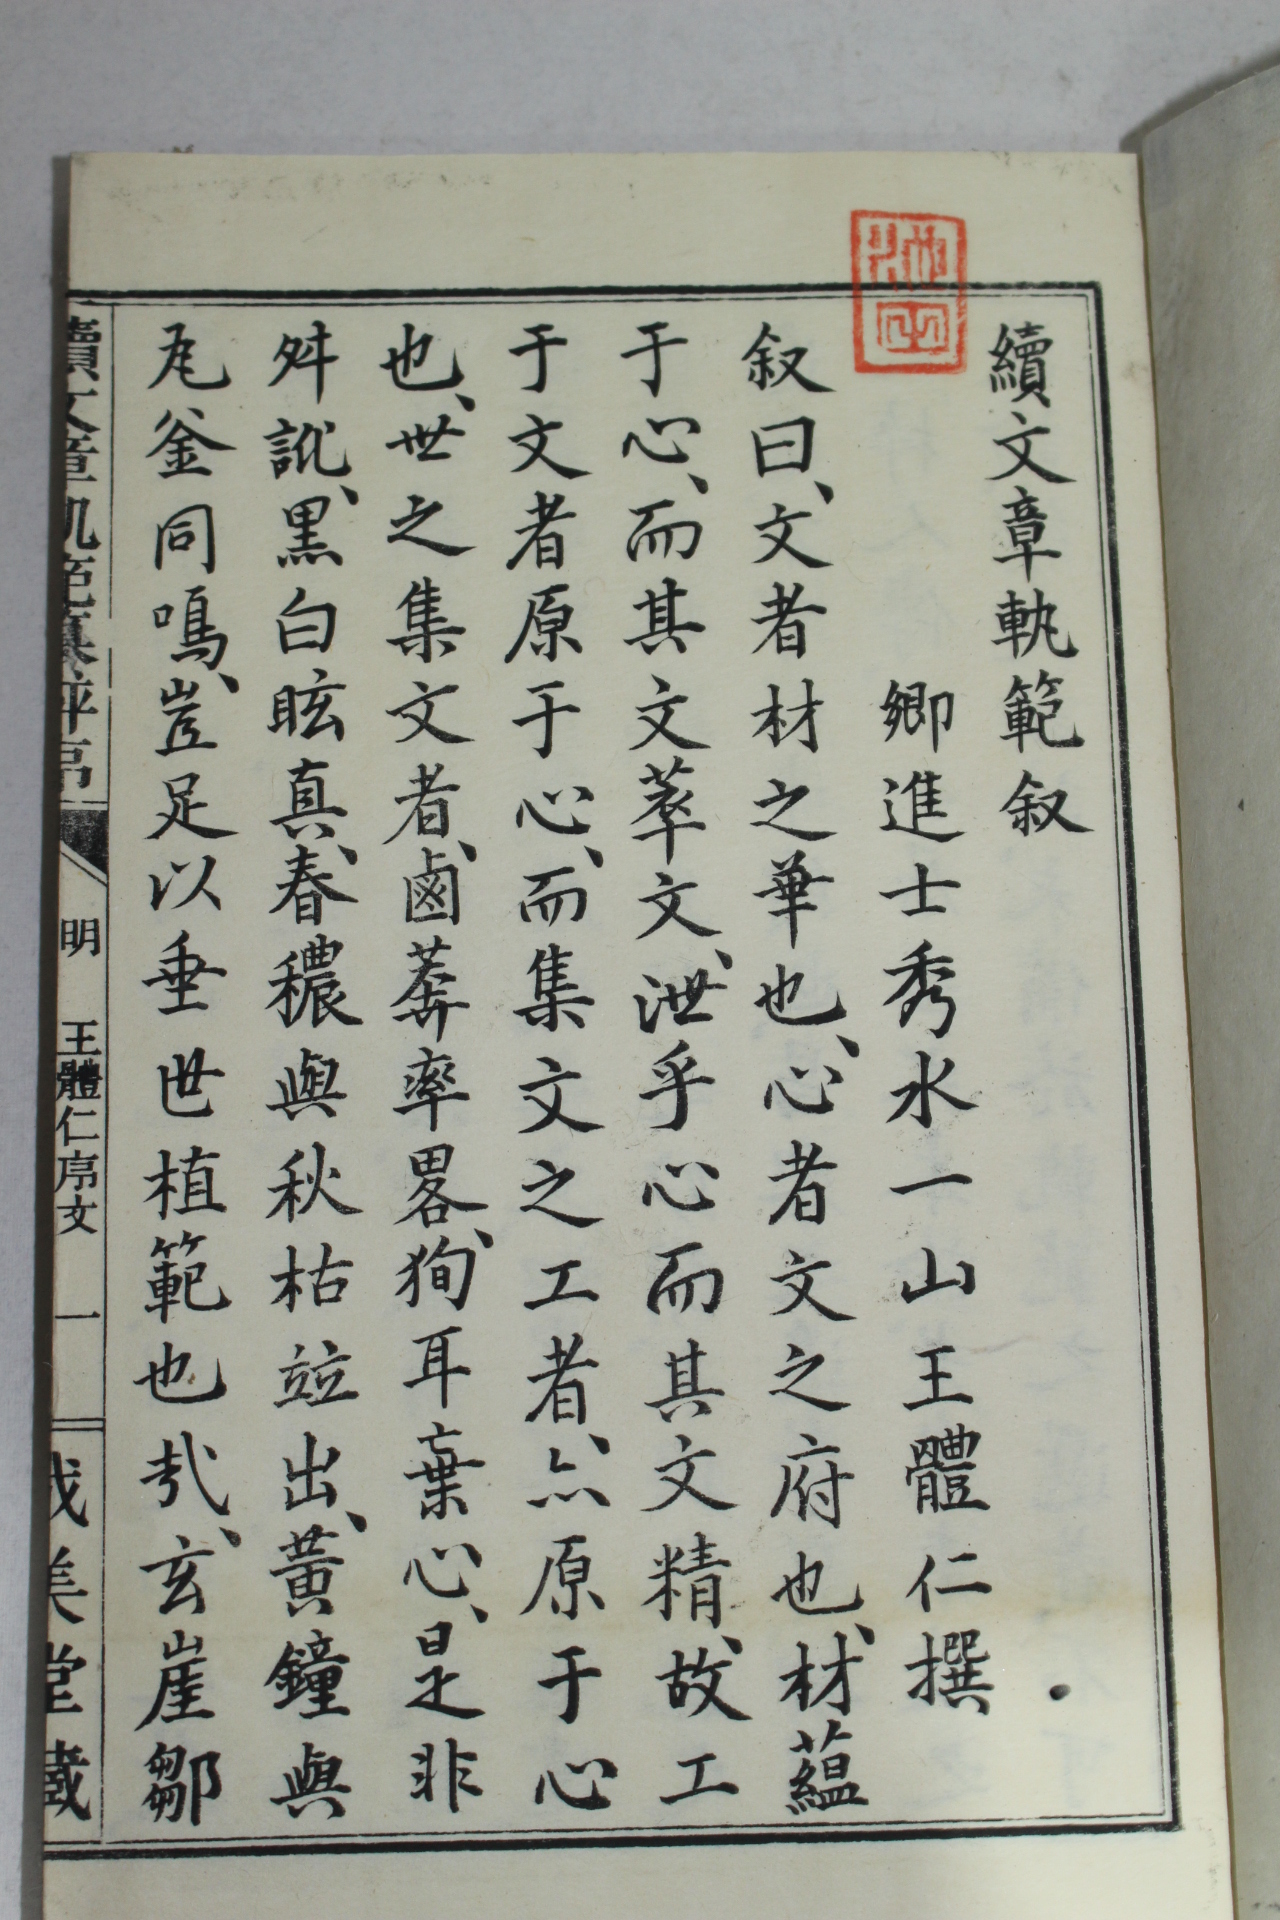 續文章軌範叙
鄉進士秀水一山王體仁撰
叙曰、文者材之華也、心者文之府也、材蘊
于心、而其文萃文、泄乎心而其文精、故工
于文者原于心、而集文之工者、亦原于心
也、世之集文者、鹵莽率畧、狥耳棄心、是非
舛訛、黑白眩真、春穠與秋枯竝出、黃鐘與
瓦釜同鳴、豈足以垂世植範也㢤、玄崖鄒
續文章軌範纂評序
明 王體仁序文 一
成美堂藏